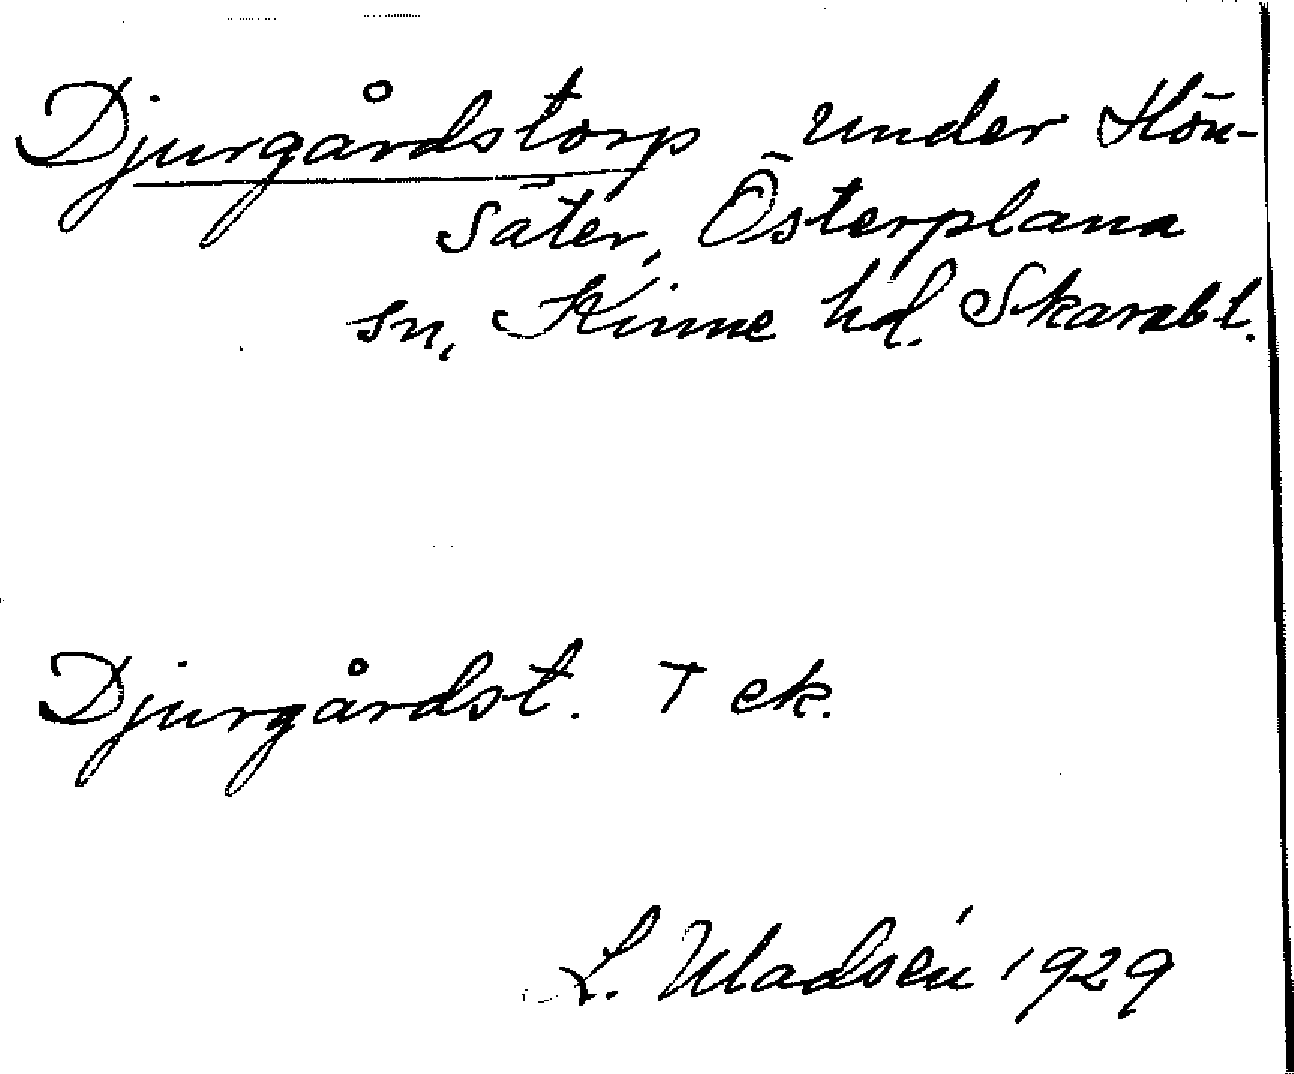 Djurgårdstorp under Hön-
säter, Österplana
sn, Kinne hd. Skarabl.
Djurgårdst. T ek.
L. Uladsén 1929